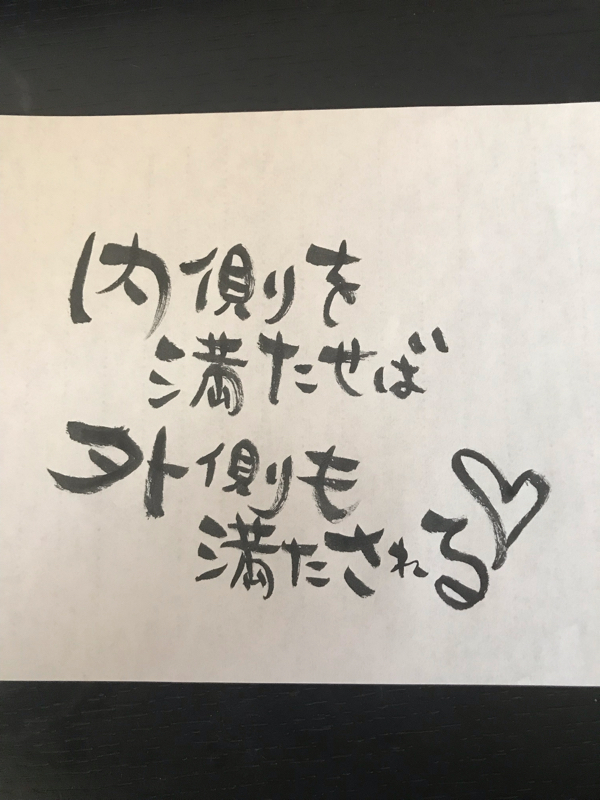 内側を
満たせば
外側も
満たされる